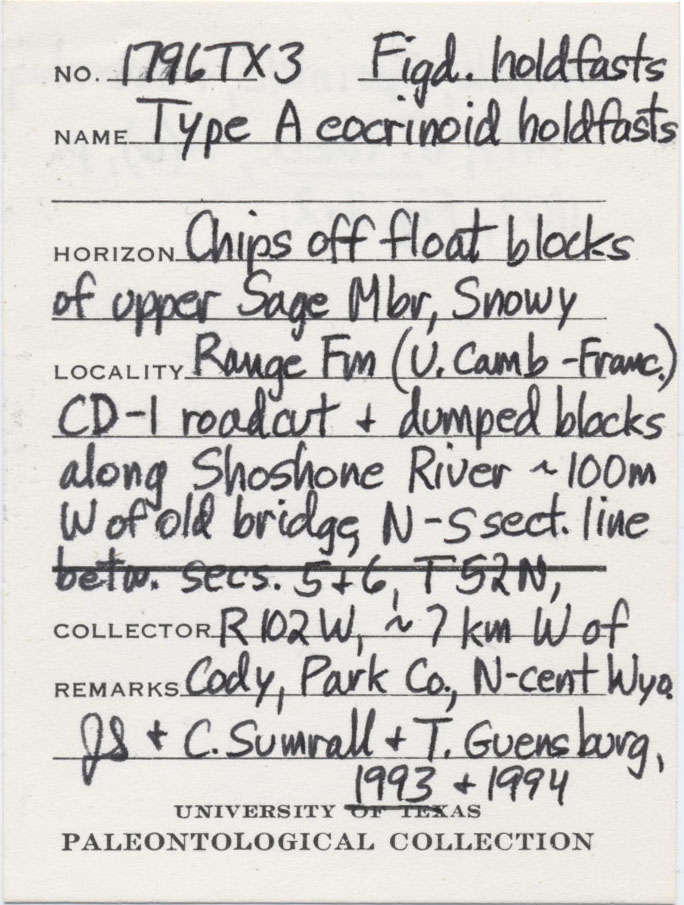 NO. 1796TX3 Figd. holdfasts
NAME Type A eocrinoid holdfasts
HORIZON Chips off float blocks
of upper Sage Mbr, Snowy
LOCALITY Range Fm (U. Camb - Franc.)
CD-1 roadcut + dumped blocks
along Shoshone River ~100m
W of old bridge, N-S sect. line
betw. secs. 5+6, T52N,
COLLECTOR R102W, ~7 km W of
REMARKS Cody, Park Co., N-cent Wyo.
JS + C. Sumrall + T. Guensburg,
1993 + 1994
UNIVERSITY OF TEXAS
PALEONTOLOGICAL COLLECTION